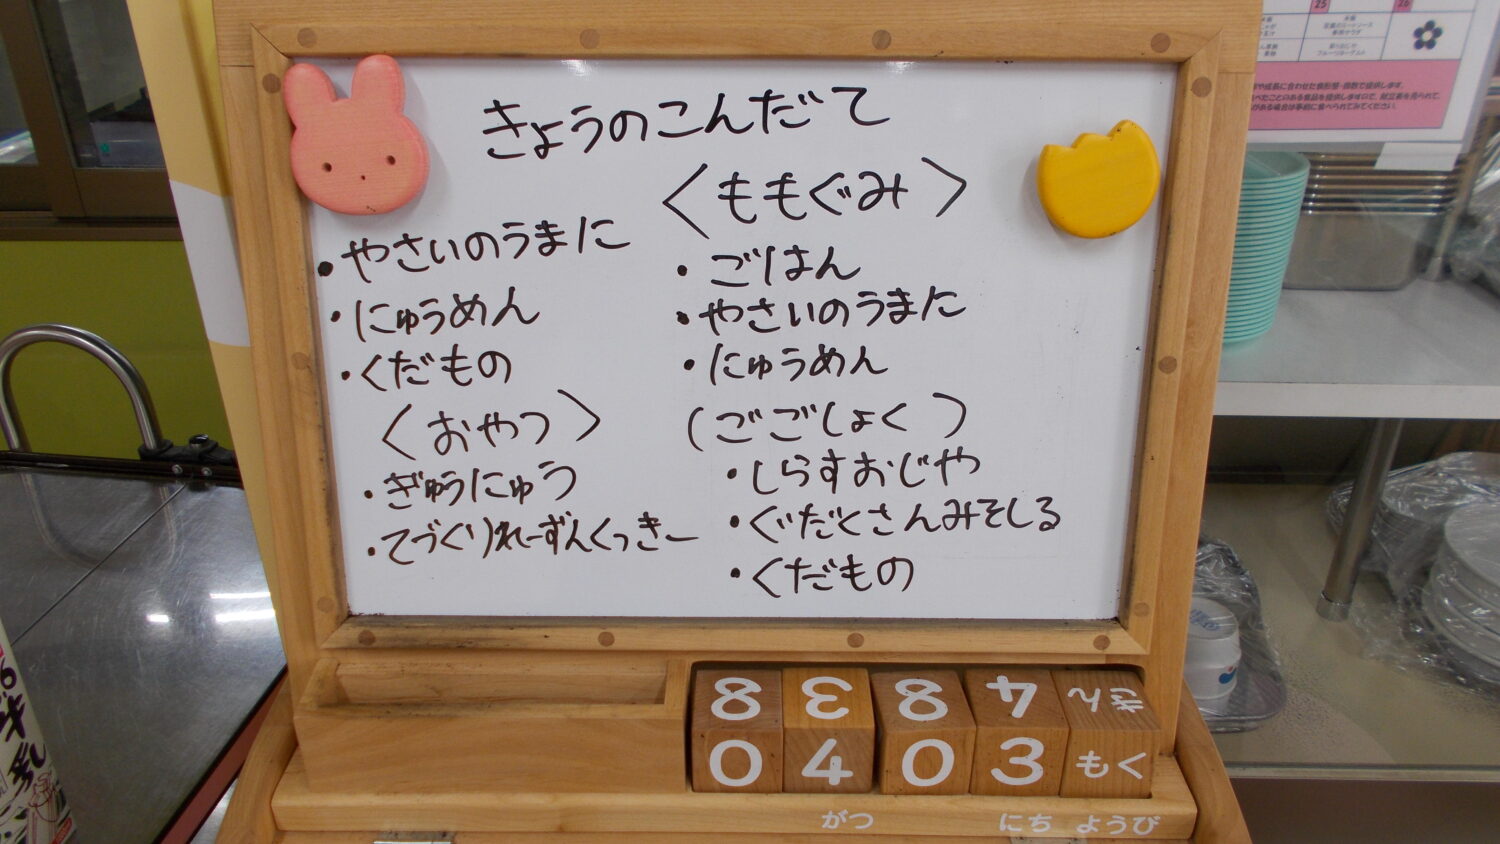 きょうのこんだて
・やさいのうまに
・にゅうめん
・くだもの
〈おやつ〉
・ぎゅうにゅう
・てづくりれーずんくっきー
〈ももぐみ〉
・ごはん
・やさいのうまに
・にゅうめん
(ごごしょく)
・しらすおじや
・ぐだくさんみそしる
・くだもの
8 3 8 4 きん
0 4 0 3 もく
がつ にち ようび
25 26
フルーツヨーグルト
牛乳